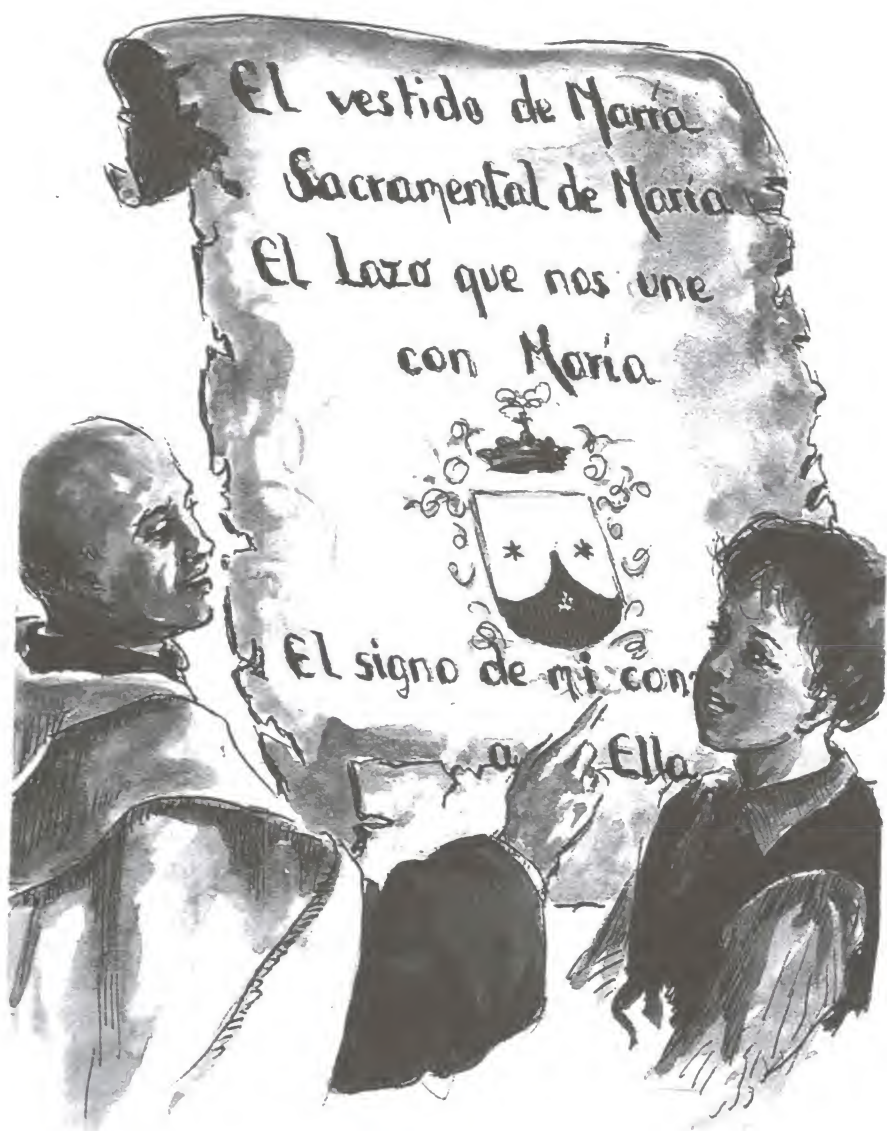 El vestido de María
Sacramental de María
El Lazo que nos une
con María
El signo de mi con
a Ella